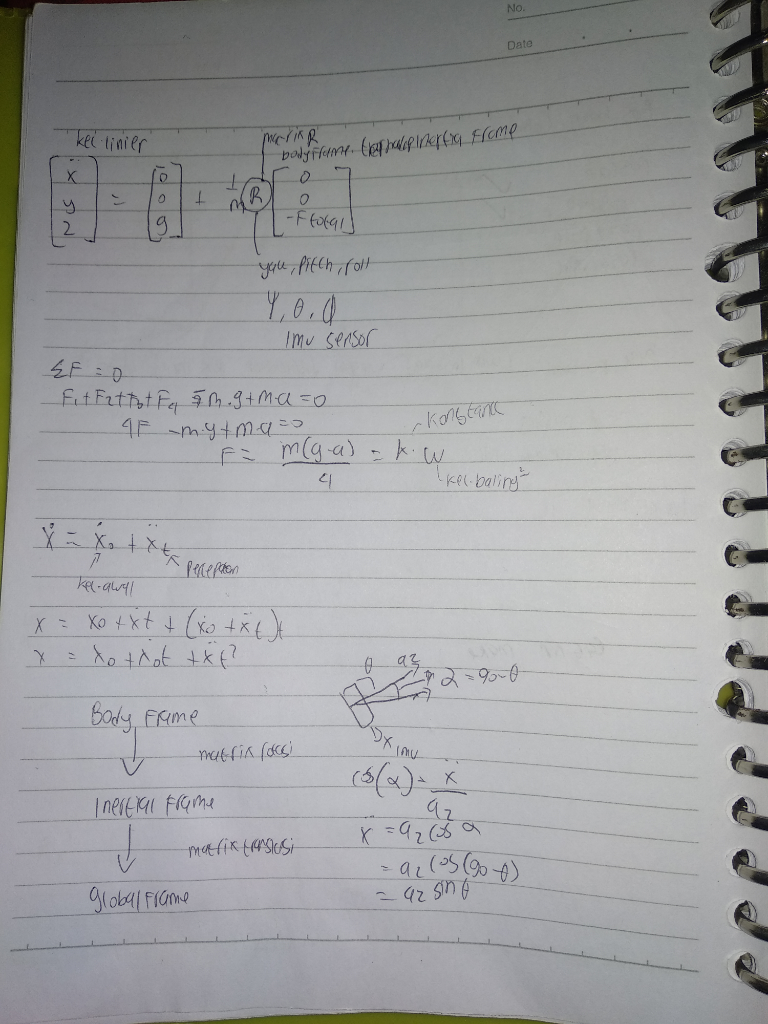 No.
Date
kec-linier
matrix R
body frame. terhadap inertia frame
[ẍ ÿ z̈] = [0 0 g] + 1/m R [0 0 -F total]
yaw, Pitch, roll
Ψ, θ, φ
imu sensor
ΣF = 0
F₁+F₂+F₃+F₄ - m.g+m.a=0
4F -m.g+m.a=0
konstanta
F = m(g-a)/4 = k.w
kec.baling²
ẋ = ẋ₀ + ẍt
kec-awal
percepatan
x = x₀ + ẋt + (ẋ₀ + ẍt)t
x = x₀ + ẋ₀t + ẍt²
θ az α = 90-θ
x imu
Body Frame
matrix rotasi
Inertial Frame
matrix translasi
Global Frame
cos(α) = ẍ/az
ẍ = az cos α
= az cos(90-θ)
= az sin θ